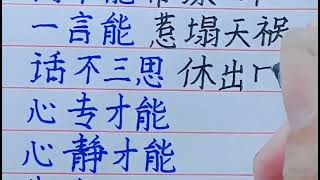 一言能 惹塌天祸
话不三思 休出
心专才能
心静才能